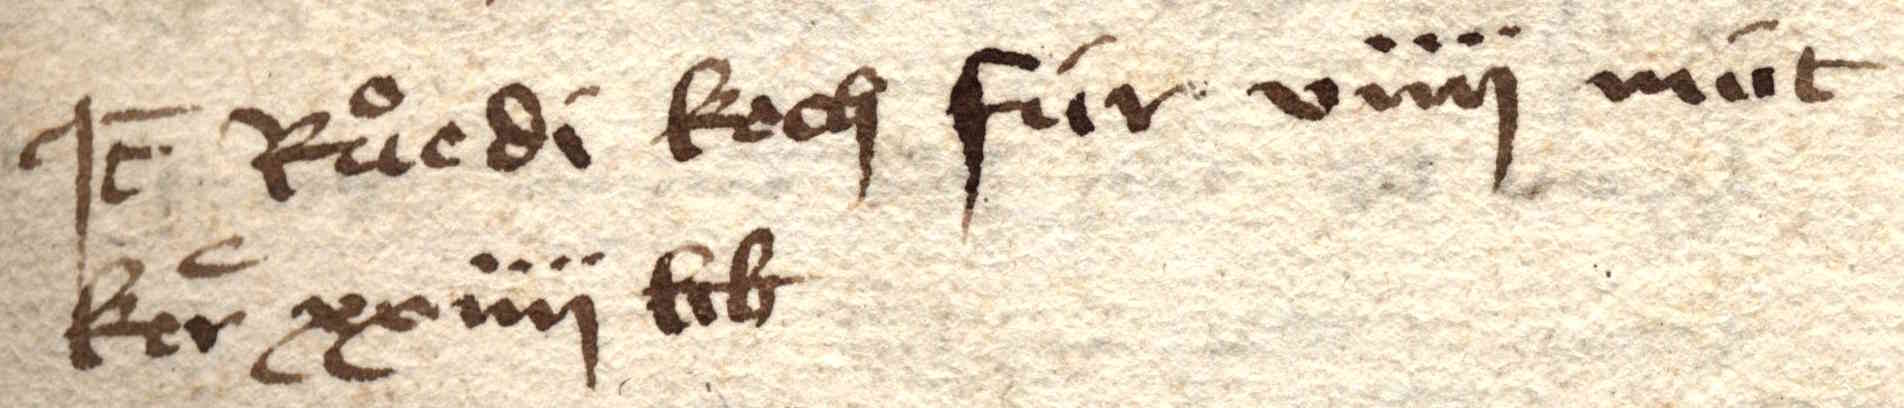 It̄ Růedi kech fúr viiij mút
ker̄ xxiiij lib